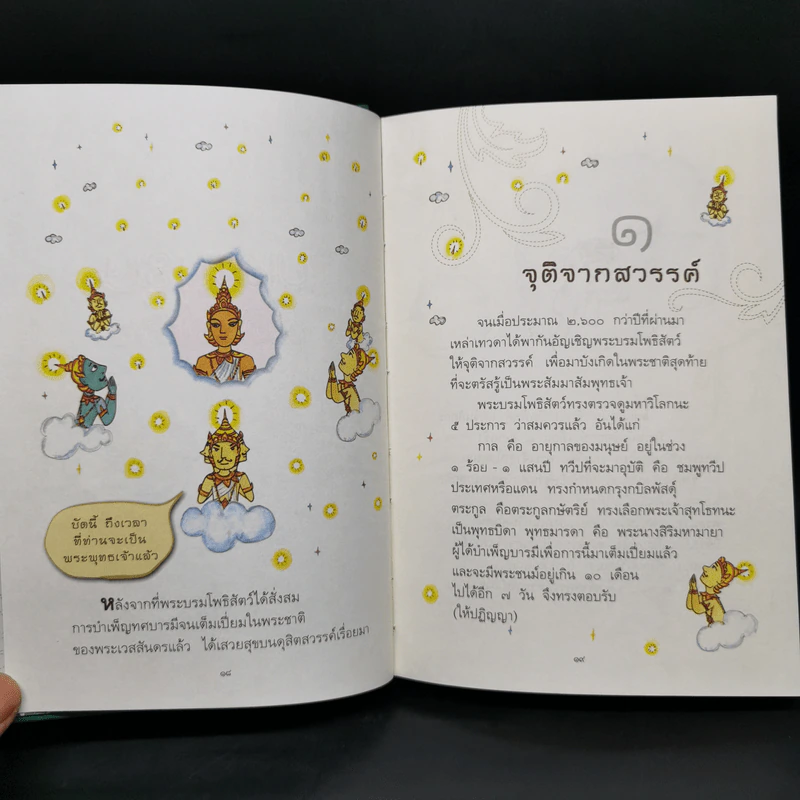 บัดนี้ ถึงเวลา
ที่ท่านจะเป็น
พระพุทธเจ้าแล้ว
หลังจากที่พระบรมโพธิสัตว์ได้สั่งสม
การบำเพ็ญทศบารมีจนเต็มเปี่ยมในพระชาติ
ของพระเวสสันดรแล้ว ได้เสวยสุขบนดุสิตสวรรค์เรื่อยมา
๑๘
๑
จุติจากสวรรค์
จนเมื่อประมาณ ๒,๖๐๐ กว่าปีที่ผ่านมา
เหล่าเทวดาได้พากันอัญเชิญพระบรมโพธิสัตว์
ให้จุติจากสวรรค์ เพื่อมาบังเกิดในพระชาติสุดท้าย
ที่จะตรัสรู้เป็นพระสัมมาสัมพุทธเจ้า
พระบรมโพธิสัตว์ทรงตรวจดูมหาวิโลกนะ
๕ ประการ ว่าสมควรแล้ว อันได้แก่
กาล คือ อายุกาลของมนุษย์ อยู่ในช่วง
๑ ร้อย - ๑ แสนปี ทวีปที่จะมาอุบัติ คือ ชมพูทวีป
ประเทศหรือแดน ทรงกำหนดกรุงกบิลพัสดุ์
ตระกูล คือตระกูลกษัตริย์ ทรงเลือกพระเจ้าสุทโธทนะ
เป็นพุทธบิดา พุทธมารดา คือ พระนางสิริมหามายา
ผู้ได้บำเพ็ญบารมีเพื่อการนี้มาเต็มเปี่ยมแล้ว
และจะมีพระชนม์อยู่เกิน ๑๐ เดือน
ไปได้อีก ๗ วัน จึงทรงตอบรับ
(ให้ปฏิญญา)
๑๙